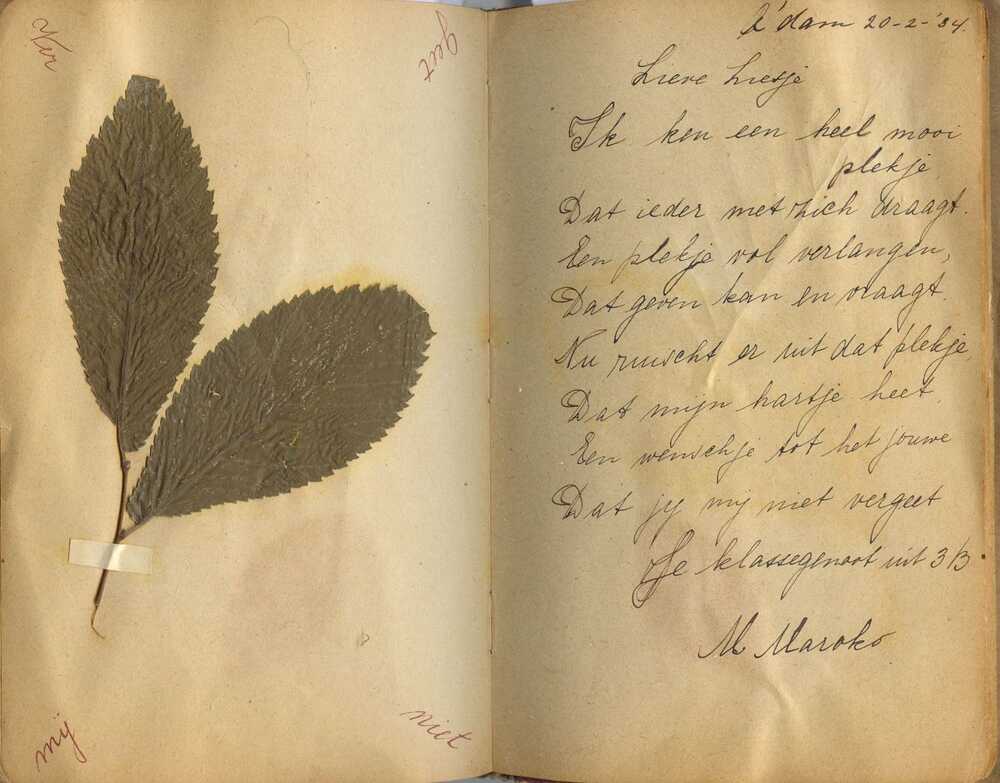 Ver
geet
mij
niet
A'dam 20-2-'34.
Lieve Liesje
Ik ken een heel mooi
plekje
Dat ieder met zich draagt.
Een plekje vol verlangen,
Dat geven kan en vraagt.
Nu ruischt er uit dat plekje,
Dat mijn hartje heet.
Een wenschje tot het jouwe
Dat jij mij niet vergeet
Je klassegenoot uit 3B
M Maroko